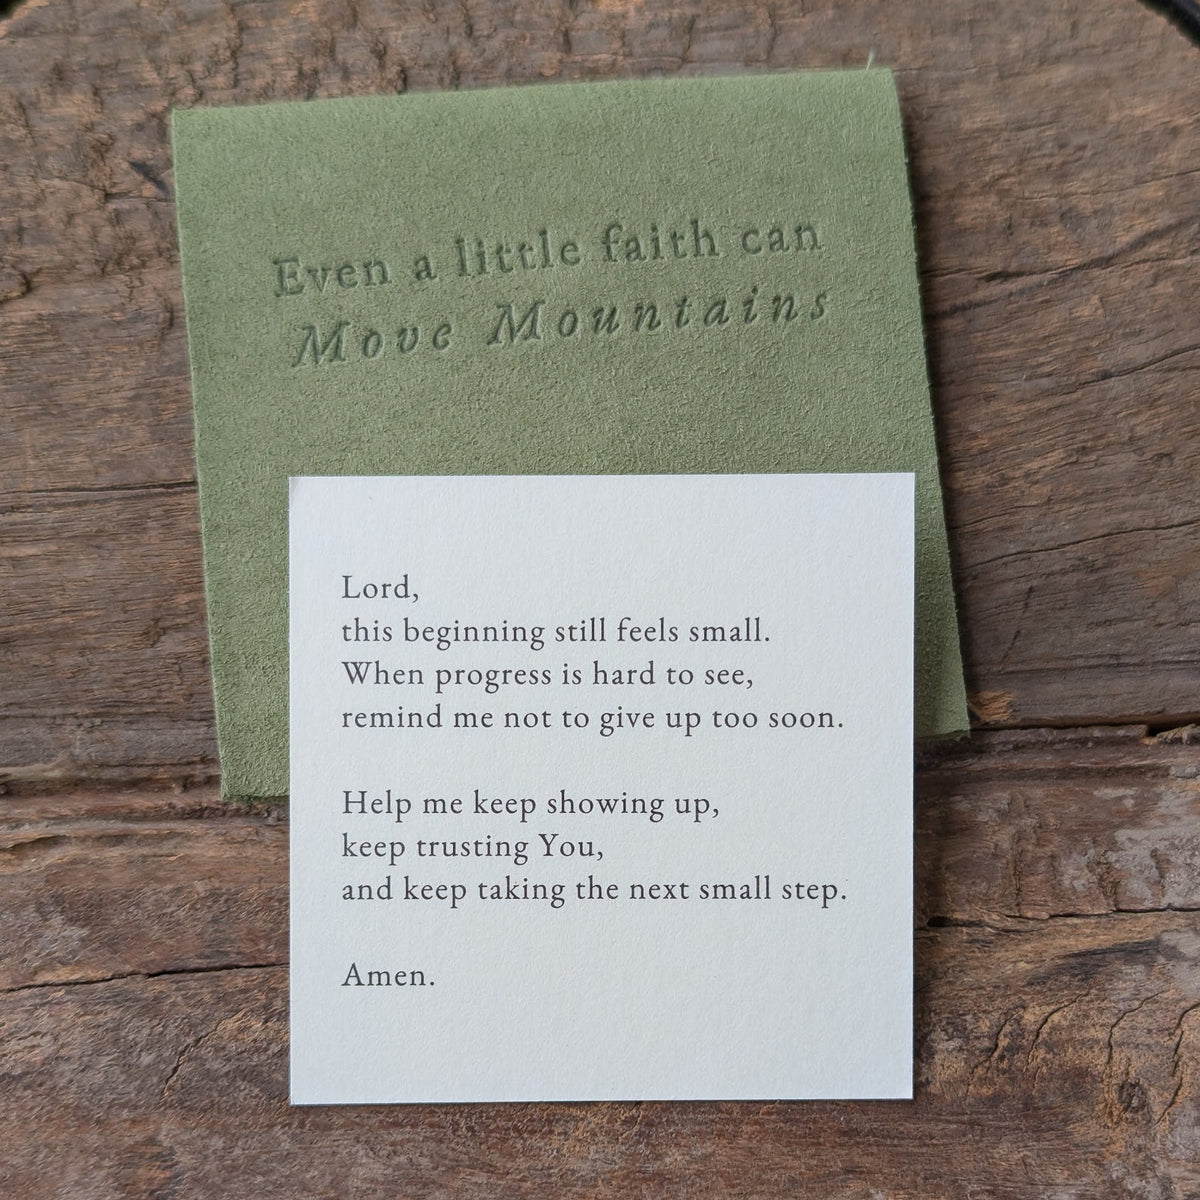 Even a little faith can
Move Mountains
Lord,
this beginning still feels small.
When progress is hard to see,
remind me not to give up too soon.
Help me keep showing up,
keep trusting You,
and keep taking the next small step.
Amen.